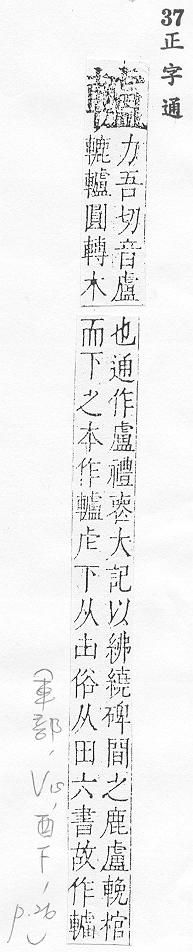 37
正字通
力吾切音盧
轆轤圓轉木
也通作盧禮喪大記以紼繞碑間之鹿盧輓棺
而下之本作轤虍下从由俗从田六書故作
(車部,
酉下,
p.26)